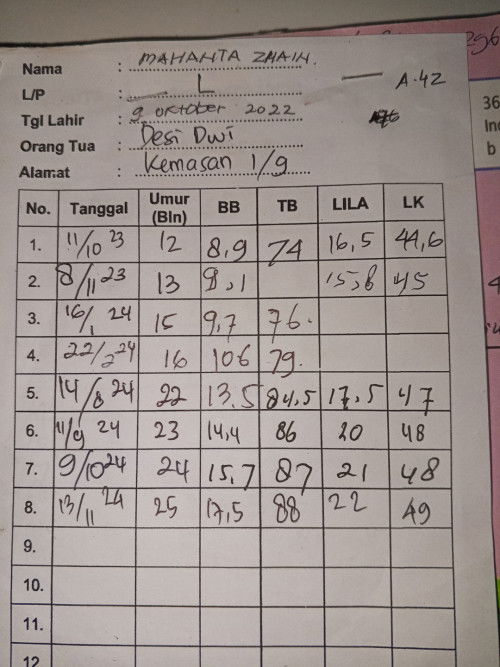 Nama : MAHANTA ZHAIN.
L/P : L
A-42
Tgl Lahir : 9 oktober 2022
Orang Tua : Desi Dwi
Alamat : Kemasan 1/9
No. Tanggal Umur (Bln) BB TB LILA LK
1. 11/10 23 12 8,9 74 16,5 44,6
2. 8/11 23 13 9,1 15,6 45
3. 16/1 24 15 9,7 76.
4. 22/2 24 16 106 79.
5. 14/8 24 22 13.5 84,5 17,5 47
6. 11/9 24 23 14,4 86 20 48
7. 9/10 24 24 15,7 87 21 48
8. 13/11 24 25 17,5 88 22 49
9.
10.
11.
12
36
b